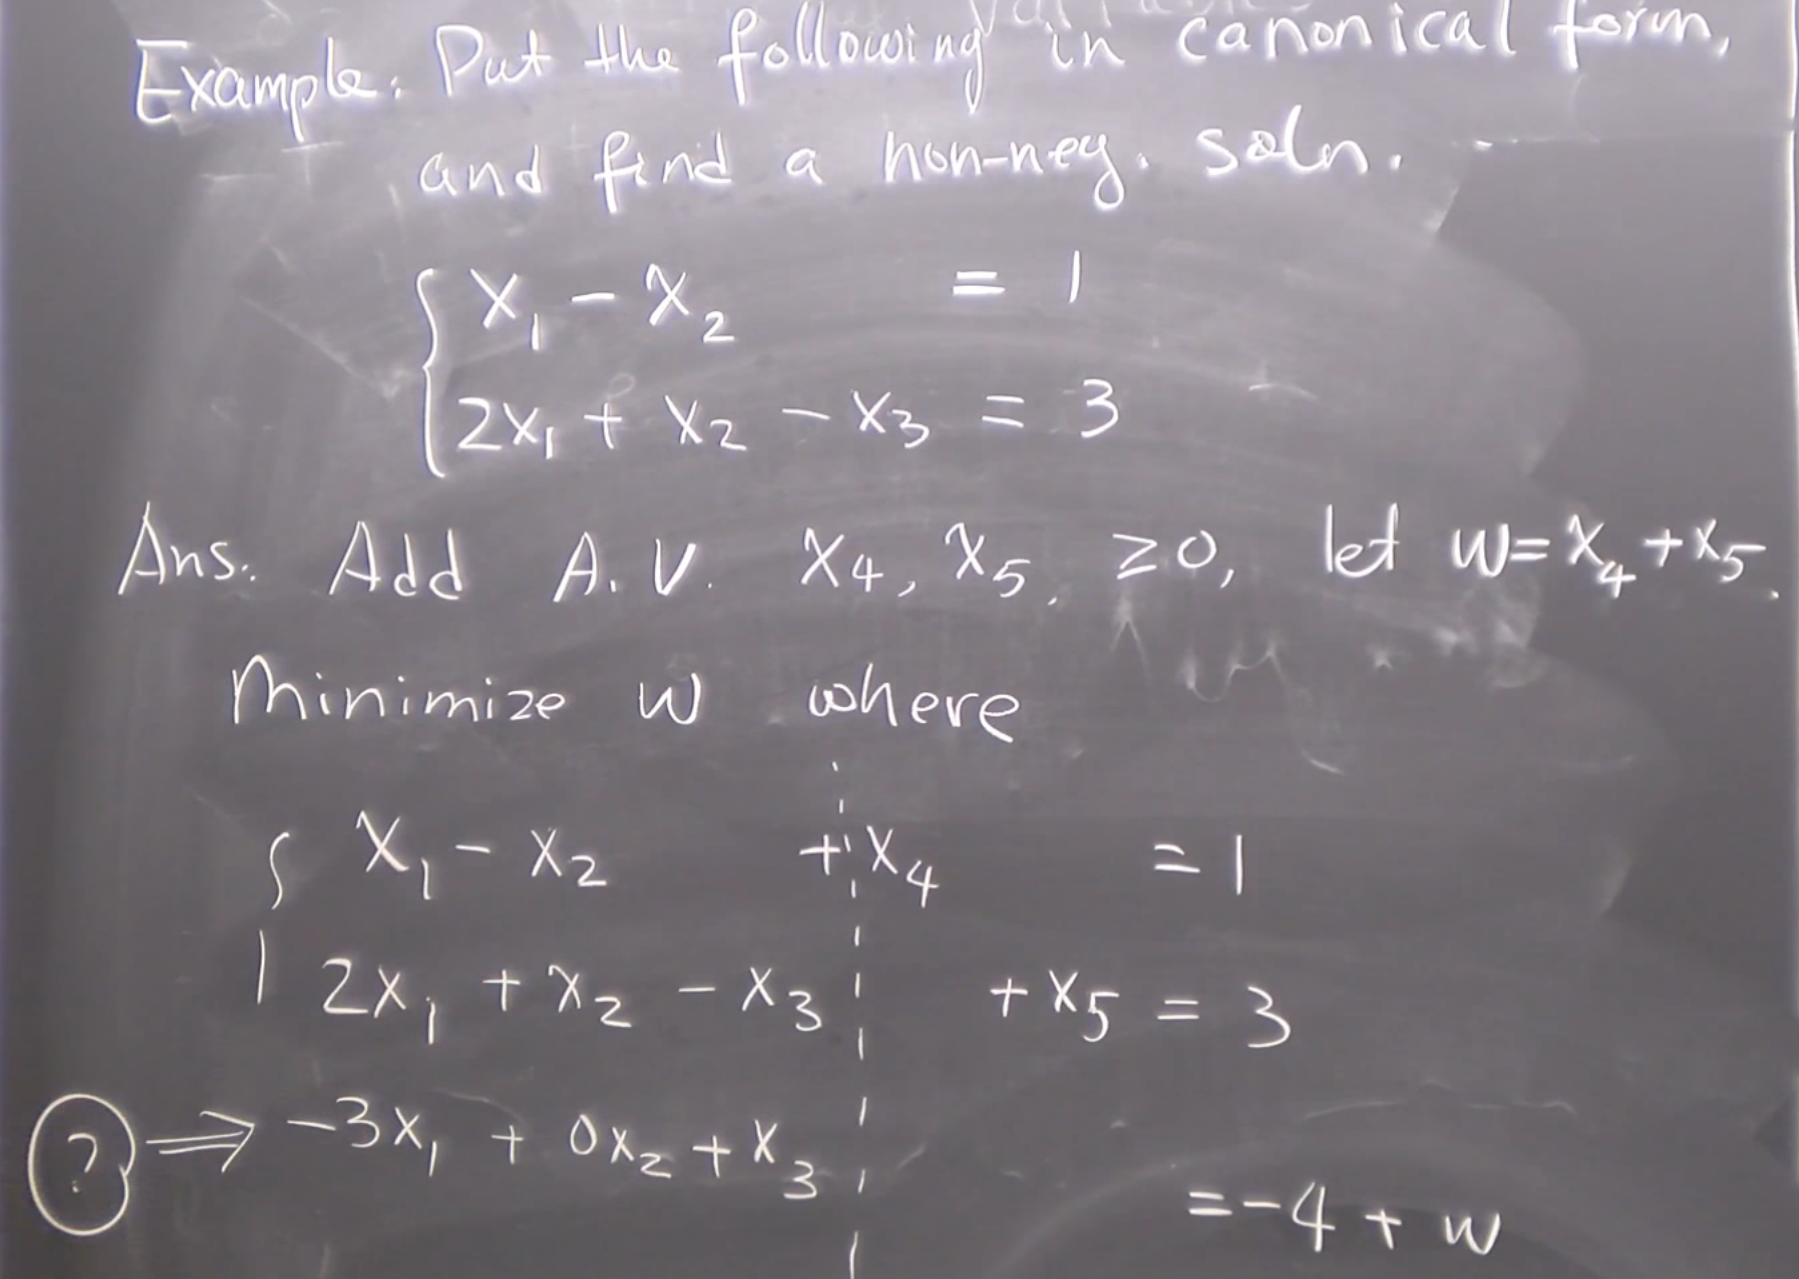 Example: Put the following in canonical form,
and find a non-neg. soln.
x₁ - x₂ = 1
2x₁ + x₂ - x₃ = 3
Ans. Add A.V. x₄, x₅, ≥0, let w=x₄+x₅.
Minimize w where
x₁ - x₂ + x₄ = 1
2x₁ + x₂ - x₃ + x₅ = 3
? ⇒ -3x₁ + 0x₂ + x₃ = -4 + w